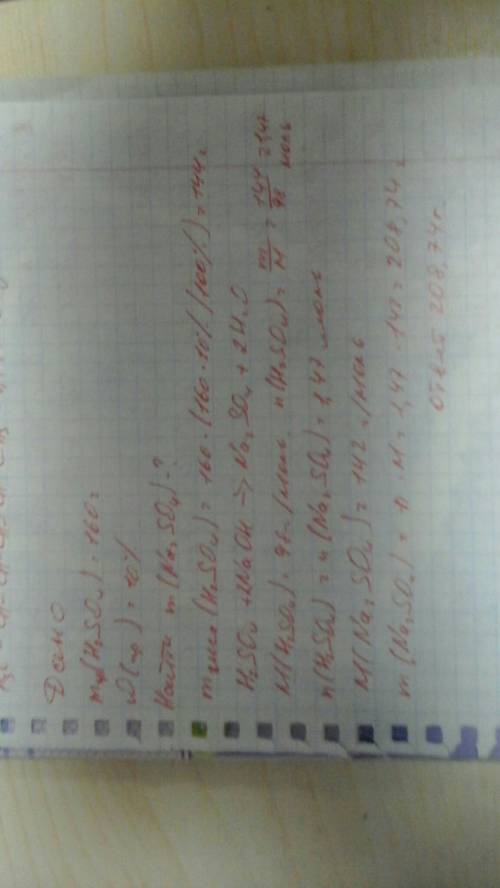 Дано
mр(H₂SO₄) = 160г
ω(пр) = 10%
Найти m(Na₂SO₄)-?
mчист(H₂SO₄) = 160 - (160·10%/100%) = 144г
H₂SO₄ + 2NaOH → Na₂SO₄ + 2H₂O
M(H₂SO₄) = 98г/моль n(H₂SO₄) = m/M = 144/98 = 1,47 моль
n(H₂SO₄) = n(Na₂SO₄) = 1,47 моль
M(Na₂SO₄) = 142г/моль
m(Na₂SO₄) = n·M = 1,47·142 = 208,74г
ответ 208,74г